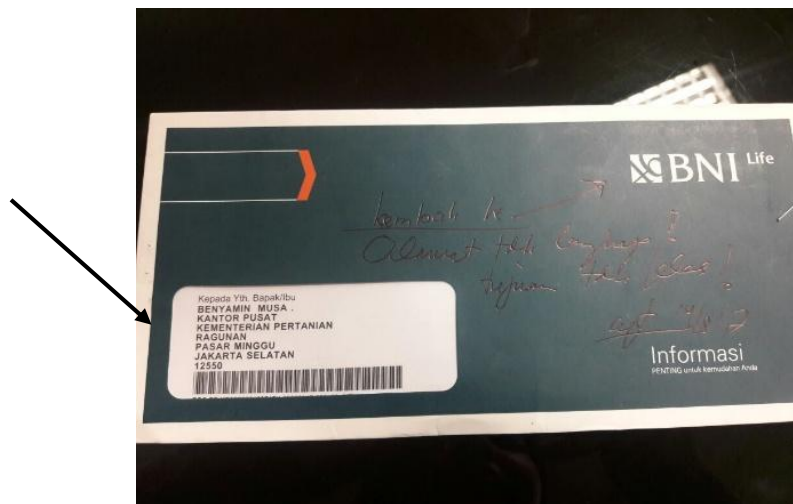 BNI Life
kembali ke
Alamat tdk lengkap !
tujuan tdk jelas !
Kepada Yth. Bapak/Ibu
BENYAMIN MUSA .
KANTOR PUSAT
KEMENTERIAN PERTANIAN
RAGUNAN
PASAR MINGGU
JAKARTA SELATAN
12550
Informasi
PENTING untuk kemudahan Anda